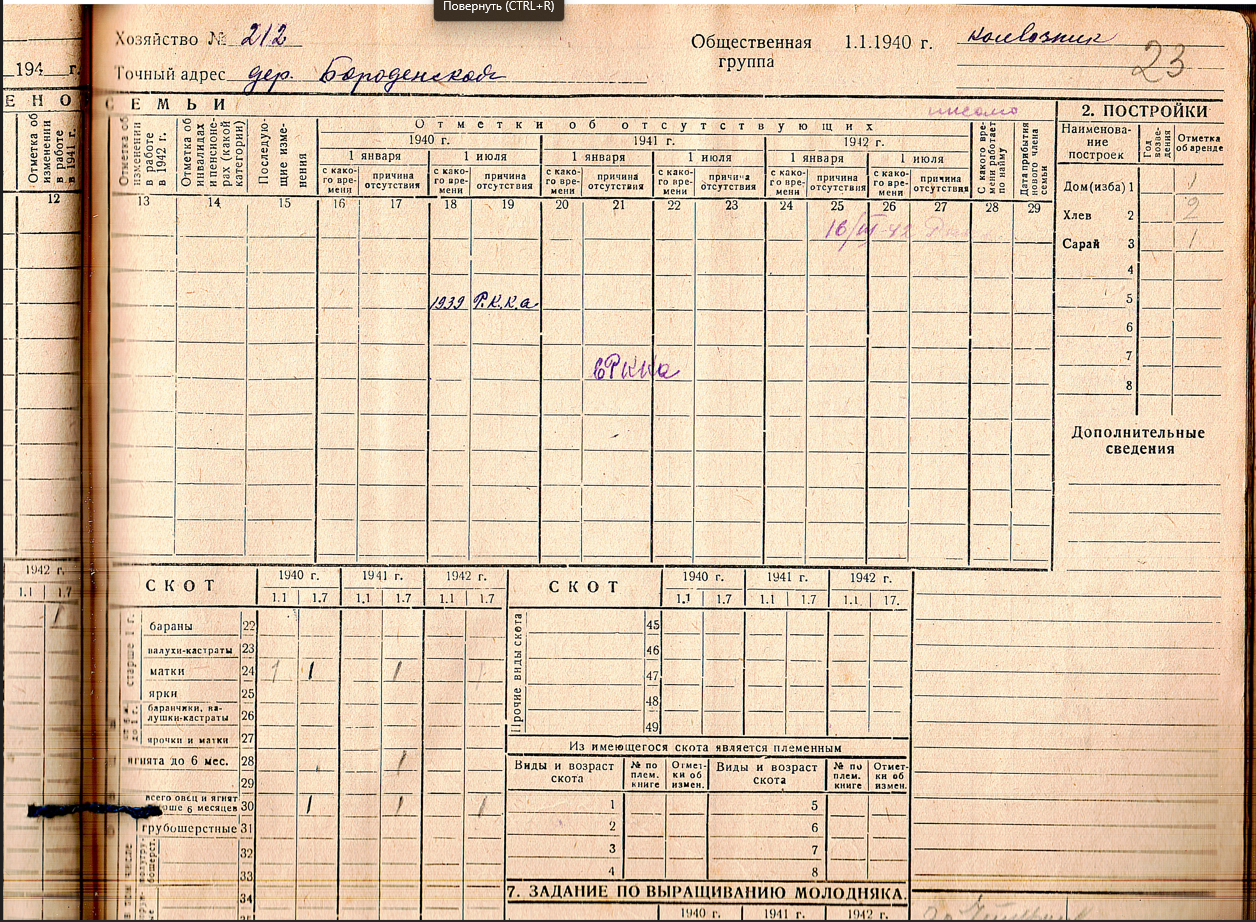 Повернуть (CTRL+R)
Хозяйство № 212
Общественная группа 1.1.1940 г. колхозник
23
194 г.
Точный адрес дер. Бороденской
ЕНО
СЕМЬИ
2. ПОСТРОЙКИ
Отметка об изменении в работе в 1941 г.
Отметка об изменении в работе в 1942 г.
Отметка об инвалидах и пенсионерах (какой категории)
Последующие изменения
Отметки об отсутствующих
1940 г. 1941 г. 1942 г.
1 января 1 июля 1 января 1 июля 1 января 1 июля
с какого времени причина отсутствия с какого времени причина отсутствия с какого времени причина отсутствия с какого времени причина отсутствия с какого времени причина отсутствия с какого времени причина отсутствия
С какого времени работает по найму
Дата прибытия нового члена семьи
Наименование построек Год возведения Отметка об аренде
12 13 14 15 16 17 18 19 20 21 22 23 24 25 26 27 28 29
Дом (изба) 1 1
Хлев 2 2
Сарай 3 1
4
5
6
7
8
1939 Р.К.К.А
РККА
Дополнительные сведения
1942 г.
1.1 1.7
1
СКОТ 1940 г. 1941 г. 1942 г.
1.1 1.7 1.1 1.7 1.1 1.7
старше 1 г.
бараны 22
валухи-кастраты 23
матки 24 1 1 1 1
ярки 25
баранчики, валушки-кастраты 26
ярочки и матки 27
ягнята до 6 мес. 28 1
29
всего овец и ягнят старше 6 месяцев 30 1 1 1
грубошерстные 31
32
33
34
СКОТ 1940 г. 1941 г. 1942 г.
1.1 1.7 1.1 1.7 1.1. 17.
Прочие виды скота
45
46
47
48
49
Из имеющегося скота является племенным
Виды и возраст скота № по плем. книге Отметки об измен. Виды и возраст скота № по плем. книге Отметки об измен.
1 5
2 6
3 7
4 8
7. ЗАДАНИЕ ПО ВЫРАЩИВАНИЮ МОЛОДНЯКА.
1940 г. 1941 г. 1942 г.